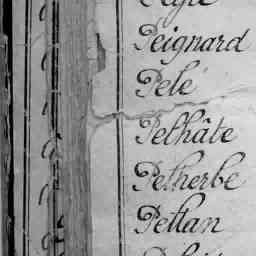 Peignard
Pelé
Pelhâte
Petherbe
Pettan